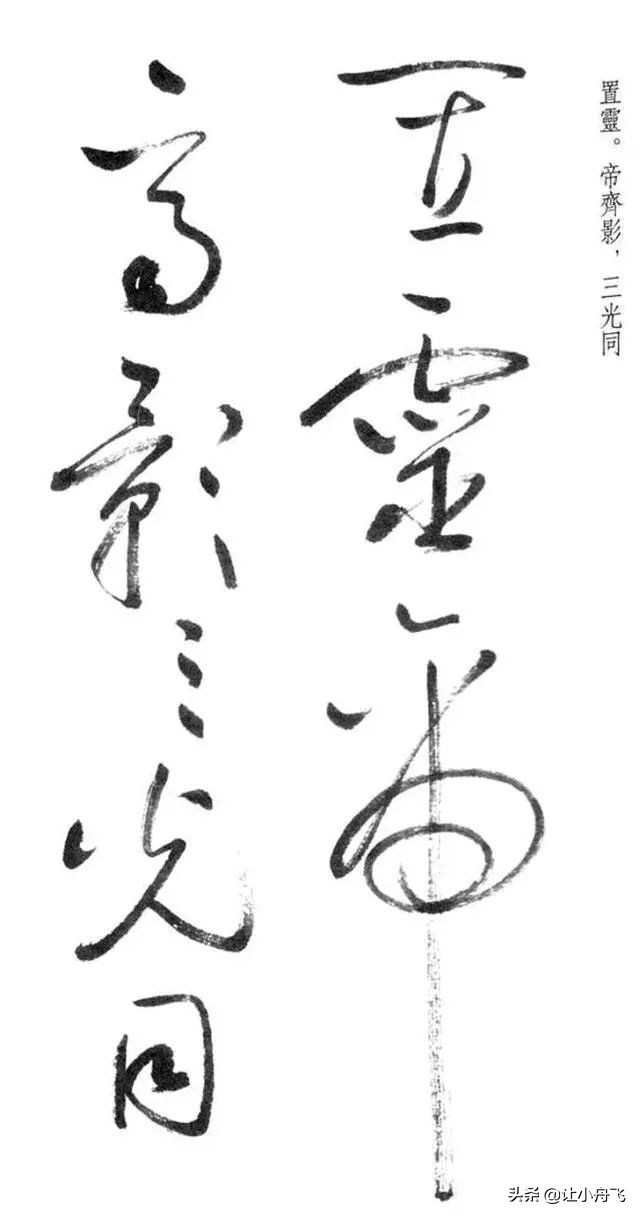 置靈。帝齊影，三光同
置靈帝
齊影三光同
头条 @让小舟飞